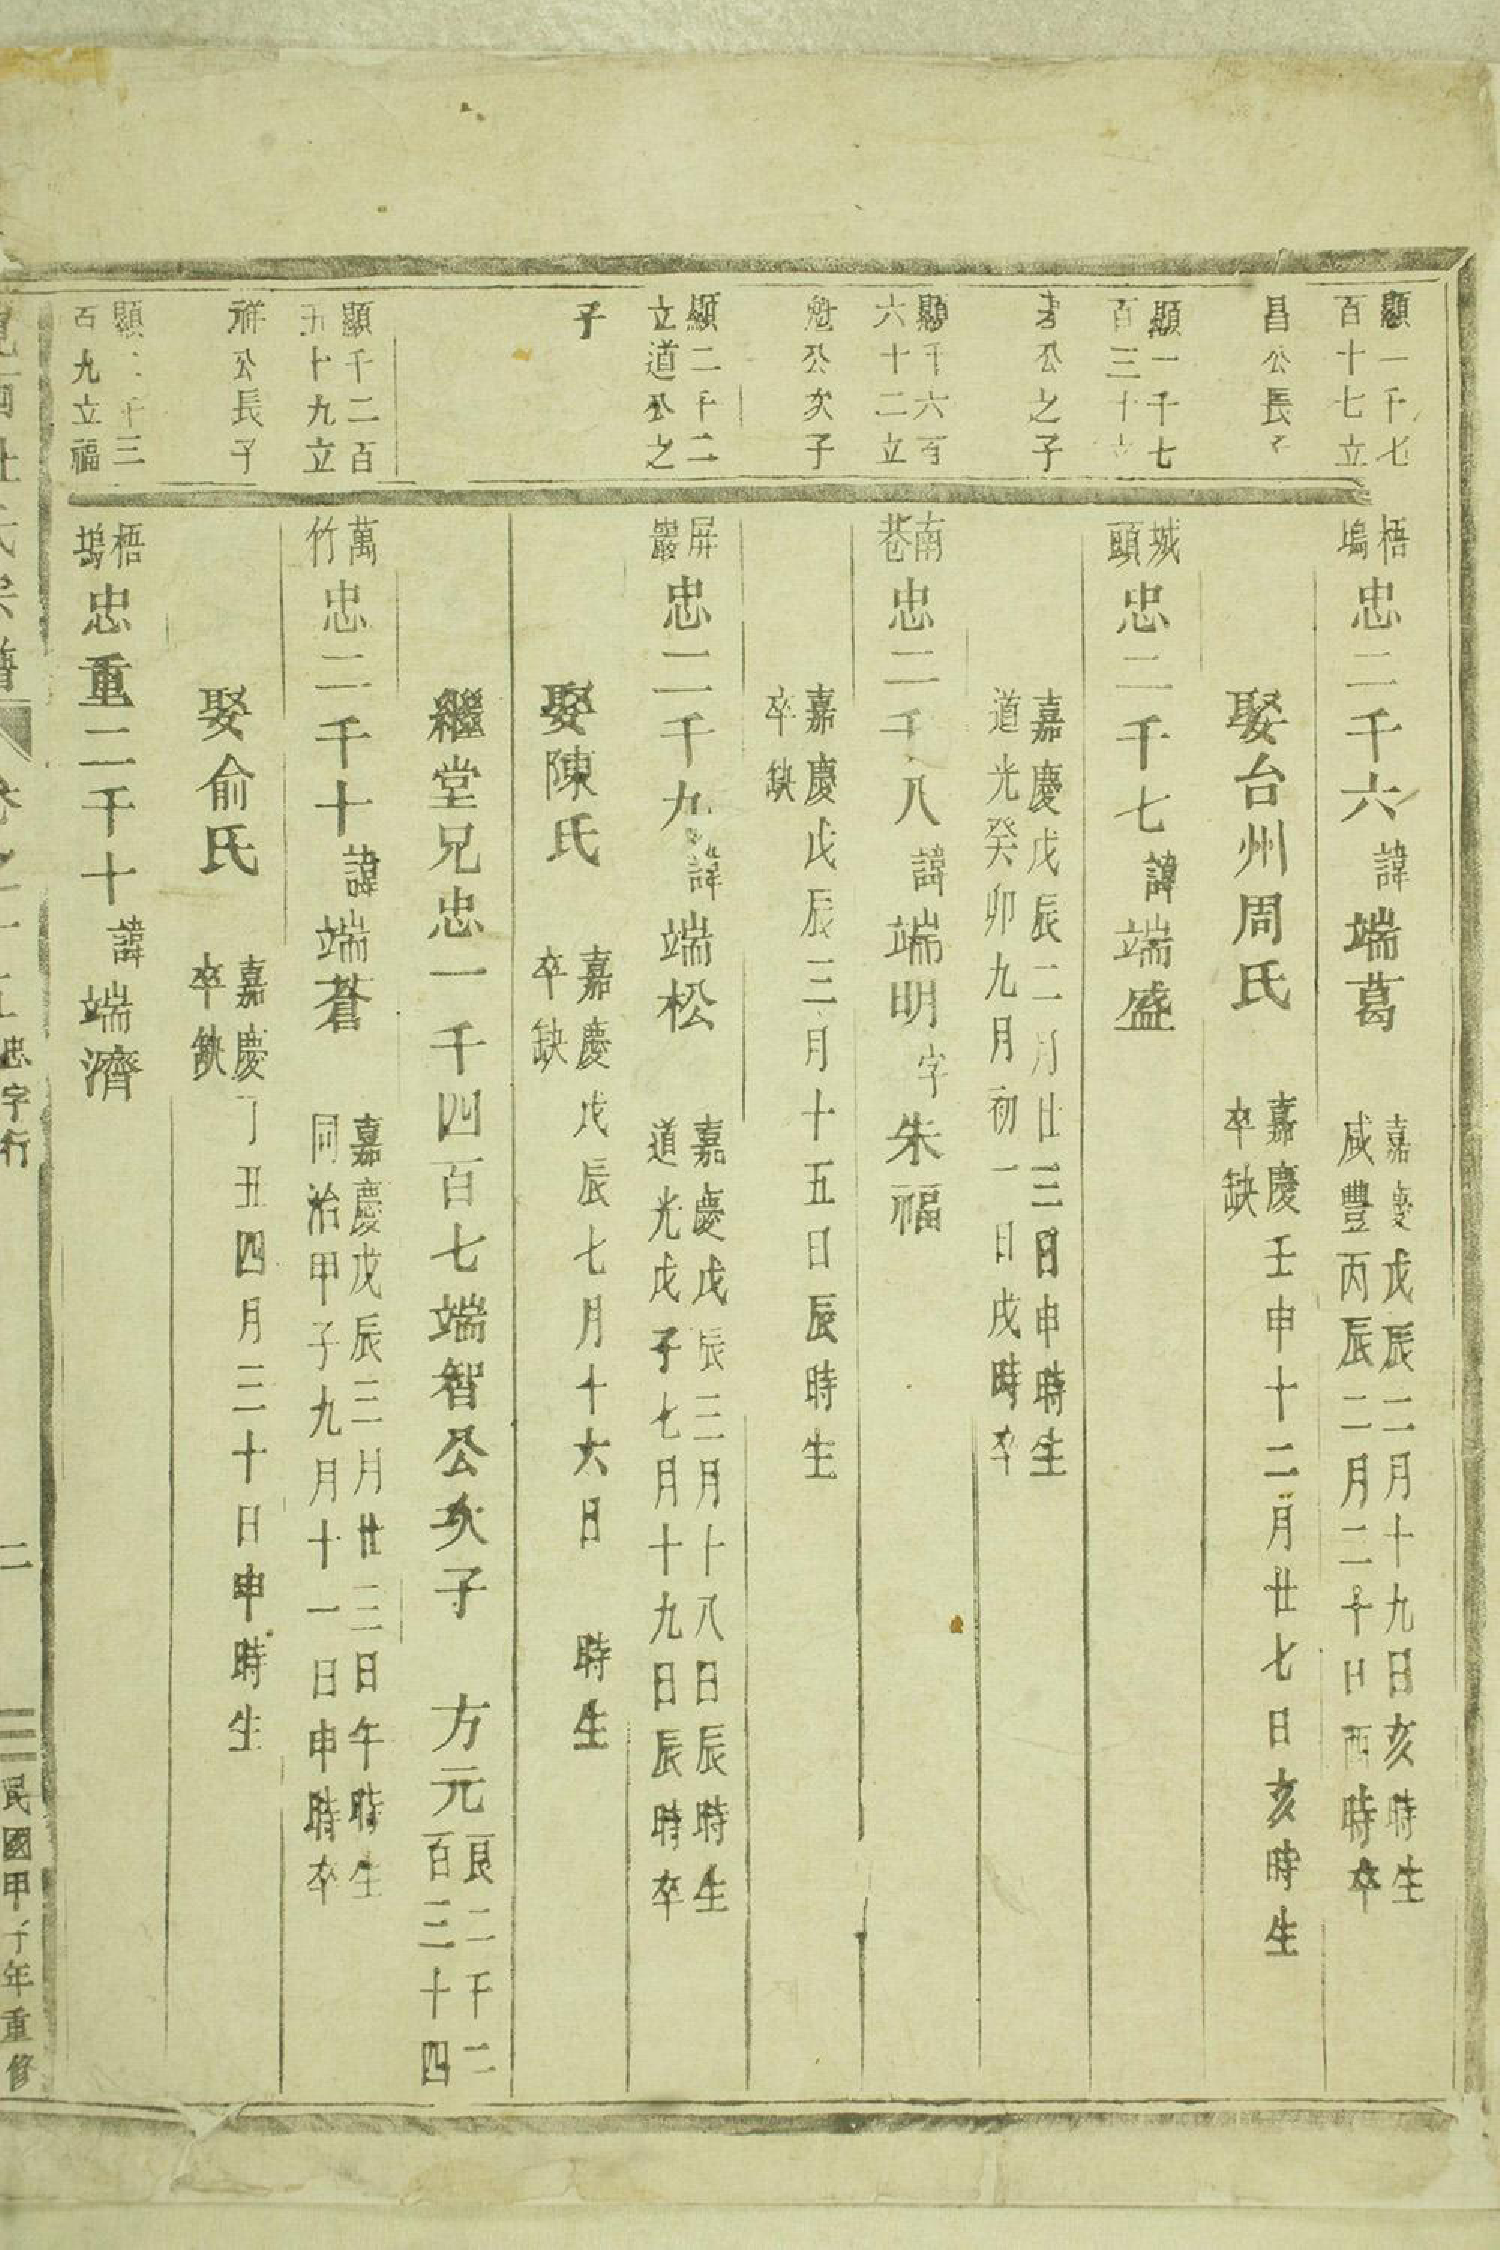 顯一千七
百十七立
昌公長子
梧塢忠二千六諱端葛
嘉慶戊辰二月十九日亥時生
咸豐丙辰二月二十日酉時卒
娶台州周氏
嘉慶壬申十二月廿七日亥時生
卒缺
顯一千七
百三十立
公之子
城頭忠二千七諱端盛
嘉慶戊辰二月廿三日申時生
道光癸卯九月初一日戌時卒
顯千六百
六十二立
魁公次子
南巷忠二千八諱端明字朱福
嘉慶戊辰三月十五日辰時生
卒缺
顯二千二
立道公之
子
屏巖忠二千九諱端松
嘉慶戊辰三月十八日辰時生
道光戊子七月十九日辰時卒
娶陳氏
嘉慶戊辰七月十六日 時生
卒缺
繼堂兄忠一千四百七端智公次子 方元
良二千二
百三十四
顯千二百
五十九立
祥公長子
萬竹忠二千十諱端蒼
嘉慶戊辰三月廿三日午時生
同治甲子九月十一日申時卒
娶俞氏
嘉慶丁丑四月三十日申時生
卒缺
顯二千三
百九立福
梧塢忠重二千十諱端濟
忠字行
二
民國甲子年重修